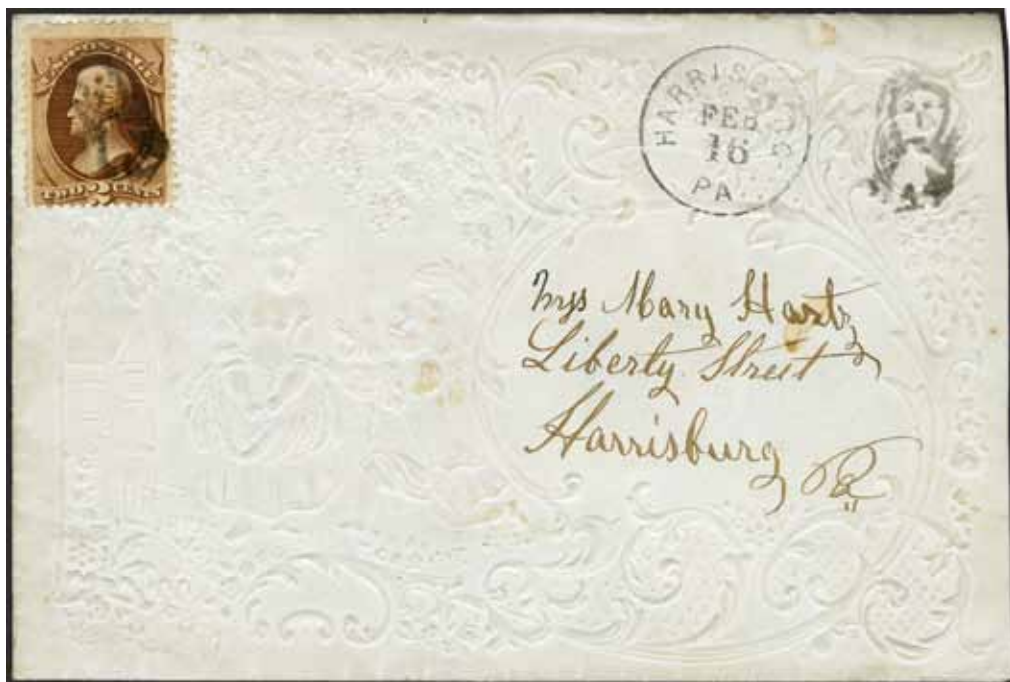 U.S. POSTAGE
TWO 2 CENTS
HARRISBURG
FEB
16
PA.
Mrs Mary Hartz
Liberty Street
Harrisburg
Pa